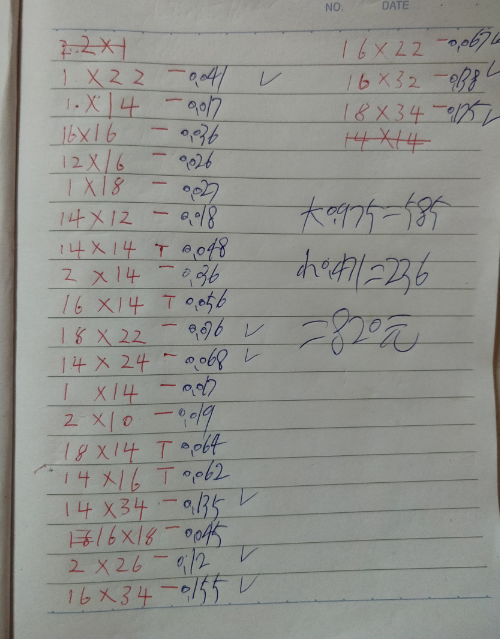 NO. DATE
2.2×1
1×22 - 0.041 ✓
1.×14 - 0.017
16×16 - 0.036
12×16 - 0.026
1×18 - 0.027
14×12 - 0.018
14×14 T 0.048
2×14 - 0.036
16×14 T 0.056
18×22 - 0.076 ✓
14×24 - 0.068 ✓
1×14 - 0.017
2×10 - 0.019
18×14 T 0.064
14×16 T 0.062
14×34 - 0.135 ✓
16×18 - 0.045
2×26 - 0.12 ✓
16×34 - 0.155 ✓
16×22 - 0.067
16×32 - 0.138 ✓
18×34 - 0.175 ✓
14×14
大0.975=585
小0.471=236
=820元